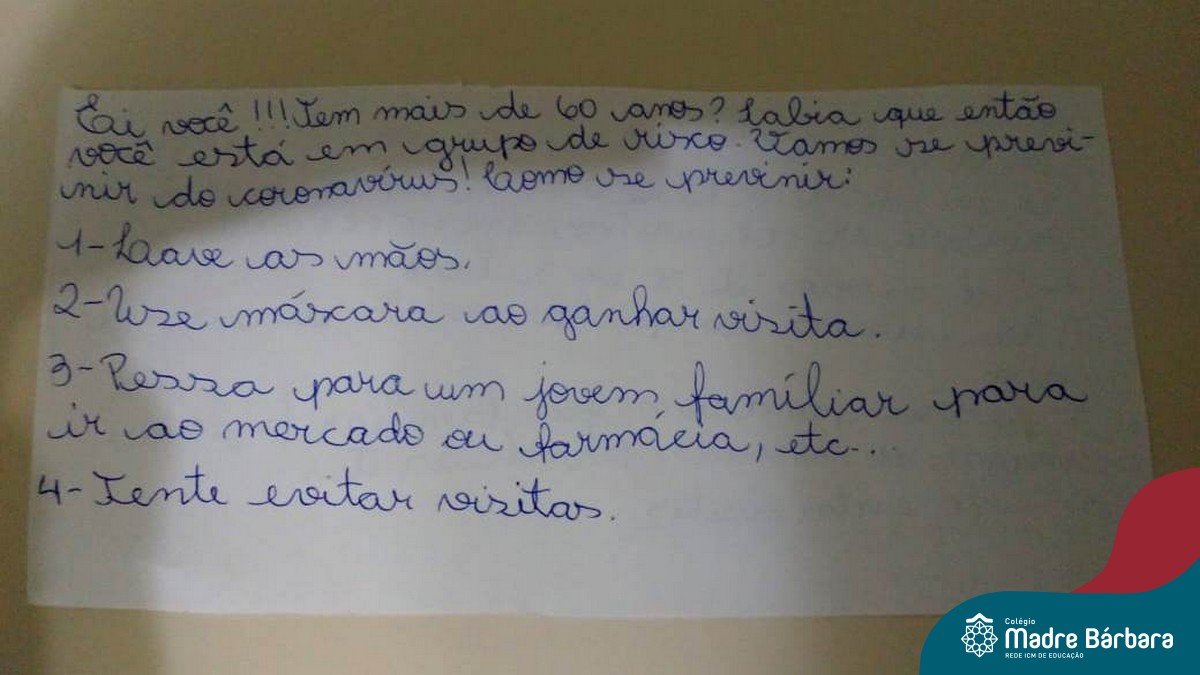 Ei você!!! Tem mais de 60 anos? Sabia que então
você está em grupo de risco. Vamos se previ-
nir do coronavírus! Como se previnir:
1- Lave as mãos.
2- Use máscara ao ganhar visita.
3- Pessa para um jovem famíliar para
ir ao mercado ou farmácia, etc...
4- Tente evitar visitas.
Colégio
Madre Bárbara
REDE ICM DE EDUCAÇÃO